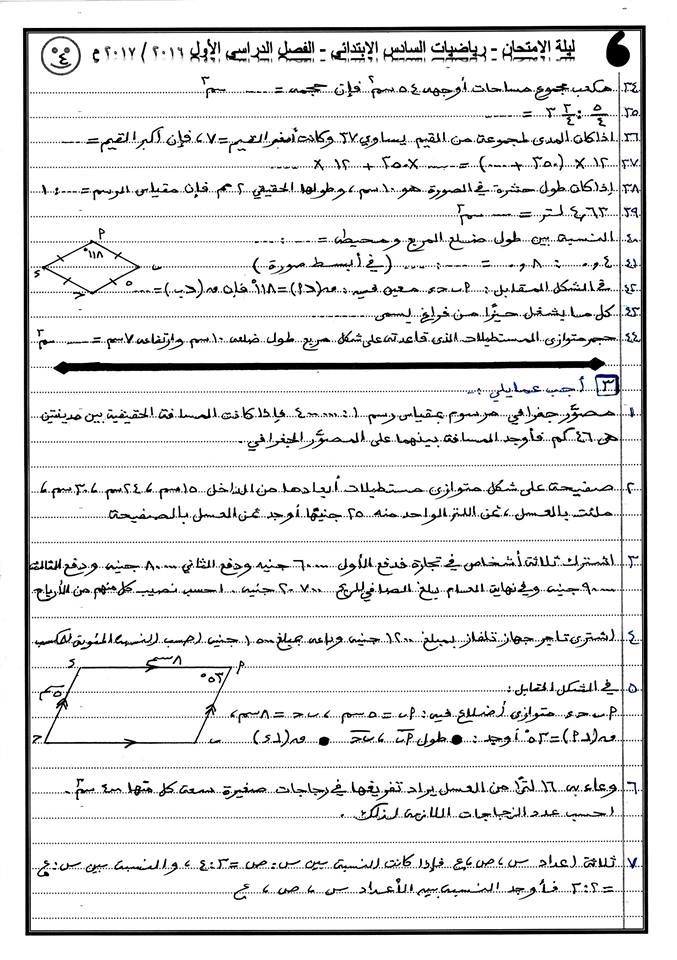 ليلة الامتحان - رياضيات السادس الابتدائى - الفصل الدراسى الأول ٢٠١٦ / ٢٠١٧ م
٤
٣٤ مكعب مجموع مساحات أوجهه ٥٤ سم٢ فإن حجمه = ...... سم٣
٣٥ ٥/٤ : ٣ ٢/٤ = ......
٣٦ إذا كان المدى لمجموعة من القيم يساوي ٢٧ وكانت أصغر القيم = ٧ ، فإن أكبر القيم = ......
٣٧ ١٢ × (٢٥٠ + ......) = ...... × ٢٥٠ + ١٢ × ......
٣٨ إذا كان طول حشرة في الصورة هو ١٠ سم ، وطولها الحقيقي ٢ مم فإن مقياس الرسم = ...... : ١
٣٩ ٤,٦٣ لتر = ...... سم٣
٤٠ النسبة بين طول ضلع المربع ومحيطه = ...... : ......
٤١ ٠,٤ : ٠,٨ = ...... : ...... (في أبسط صورة)
٤٢ في الشكل المقابل : P ب حـ ء معين فيه : ق(دP) = ١١٨° فإن ق(دب) = ......
P
١١٨°
ب
٤٣ كل ما يشغل حيزًا من فراغ يسمى ......
٤٤ حجم متوازى المستطيلات الذى قاعدته على شكل مربع طول ضلعه ١٠ سم وارتفاعه ٧ سم = ...... سم٣
٣ أجب عما يلي :
١ مصوَّر جغرافي مرسوم بمقياس رسم ١ : ٤٠٠٠٠٠ فإذا كانت المسافة الحقيقية بين مدينتين
هى ٤٦ كم فأوجد المسافة بينهما على المصوَّر الجغرافي .
٢ صفيحة على شكل متوازى مستطيلات أبعادها من الداخل ١٥ سم ، ٢٤ سم ، ٣٠ سم ،
ملئت بالعسل ، ثمن اللتر الواحد منه ٢٥ جنيهًا أوجد ثمن العسل بالصفيحة
٣ اشترك ثلاثة أشخاص في تجارة فدفع الأول ٦٠٠٠٠ جنيه ودفع الثاني ٨٠٠٠٠ جنيه ودفع الثالث
٩٠٠٠٠ جنيه وفي نهاية العام بلغ الصافي للربح ٢٠٧٠٠ جنيه . احسب نصيب كل منهم من الأرباح
٤ اشترى تاجر جهاز تلفاز بمبلغ ١٢٠٠ جنيه وباعه بمبلغ ١٥٠٠ جنيه احسب النسبة المئوية للمكسب
٥ في الشكل المقابل :
P ب حـ ء متوازى أضلاع فيه : P ب = ٥ سم ، ب حـ = ٨ سم ،
ق(دP) = ٥٣° أوجد : • طول P ب ، ب حـ • ق(دء)
ء
٨ سم
P
٥٣°
٥ سم
حـ
ب
٦ وعاء به ١٦ لترًا من العسل يراد تفريغها في زجاجات صغيرة سعة كل منها ٤٠٠ سم٣ .
احسب عدد الزجاجات اللازمة لذلك .
٧ ثلاثة أعداد س ، ص ، ع فإذا كانت النسبة بين س : ص = ٣ : ٤ ، والنسبة بين س : ع
= ٢ : ٣ فأوجد النسبة بين الأعداد س ، ص ، ع